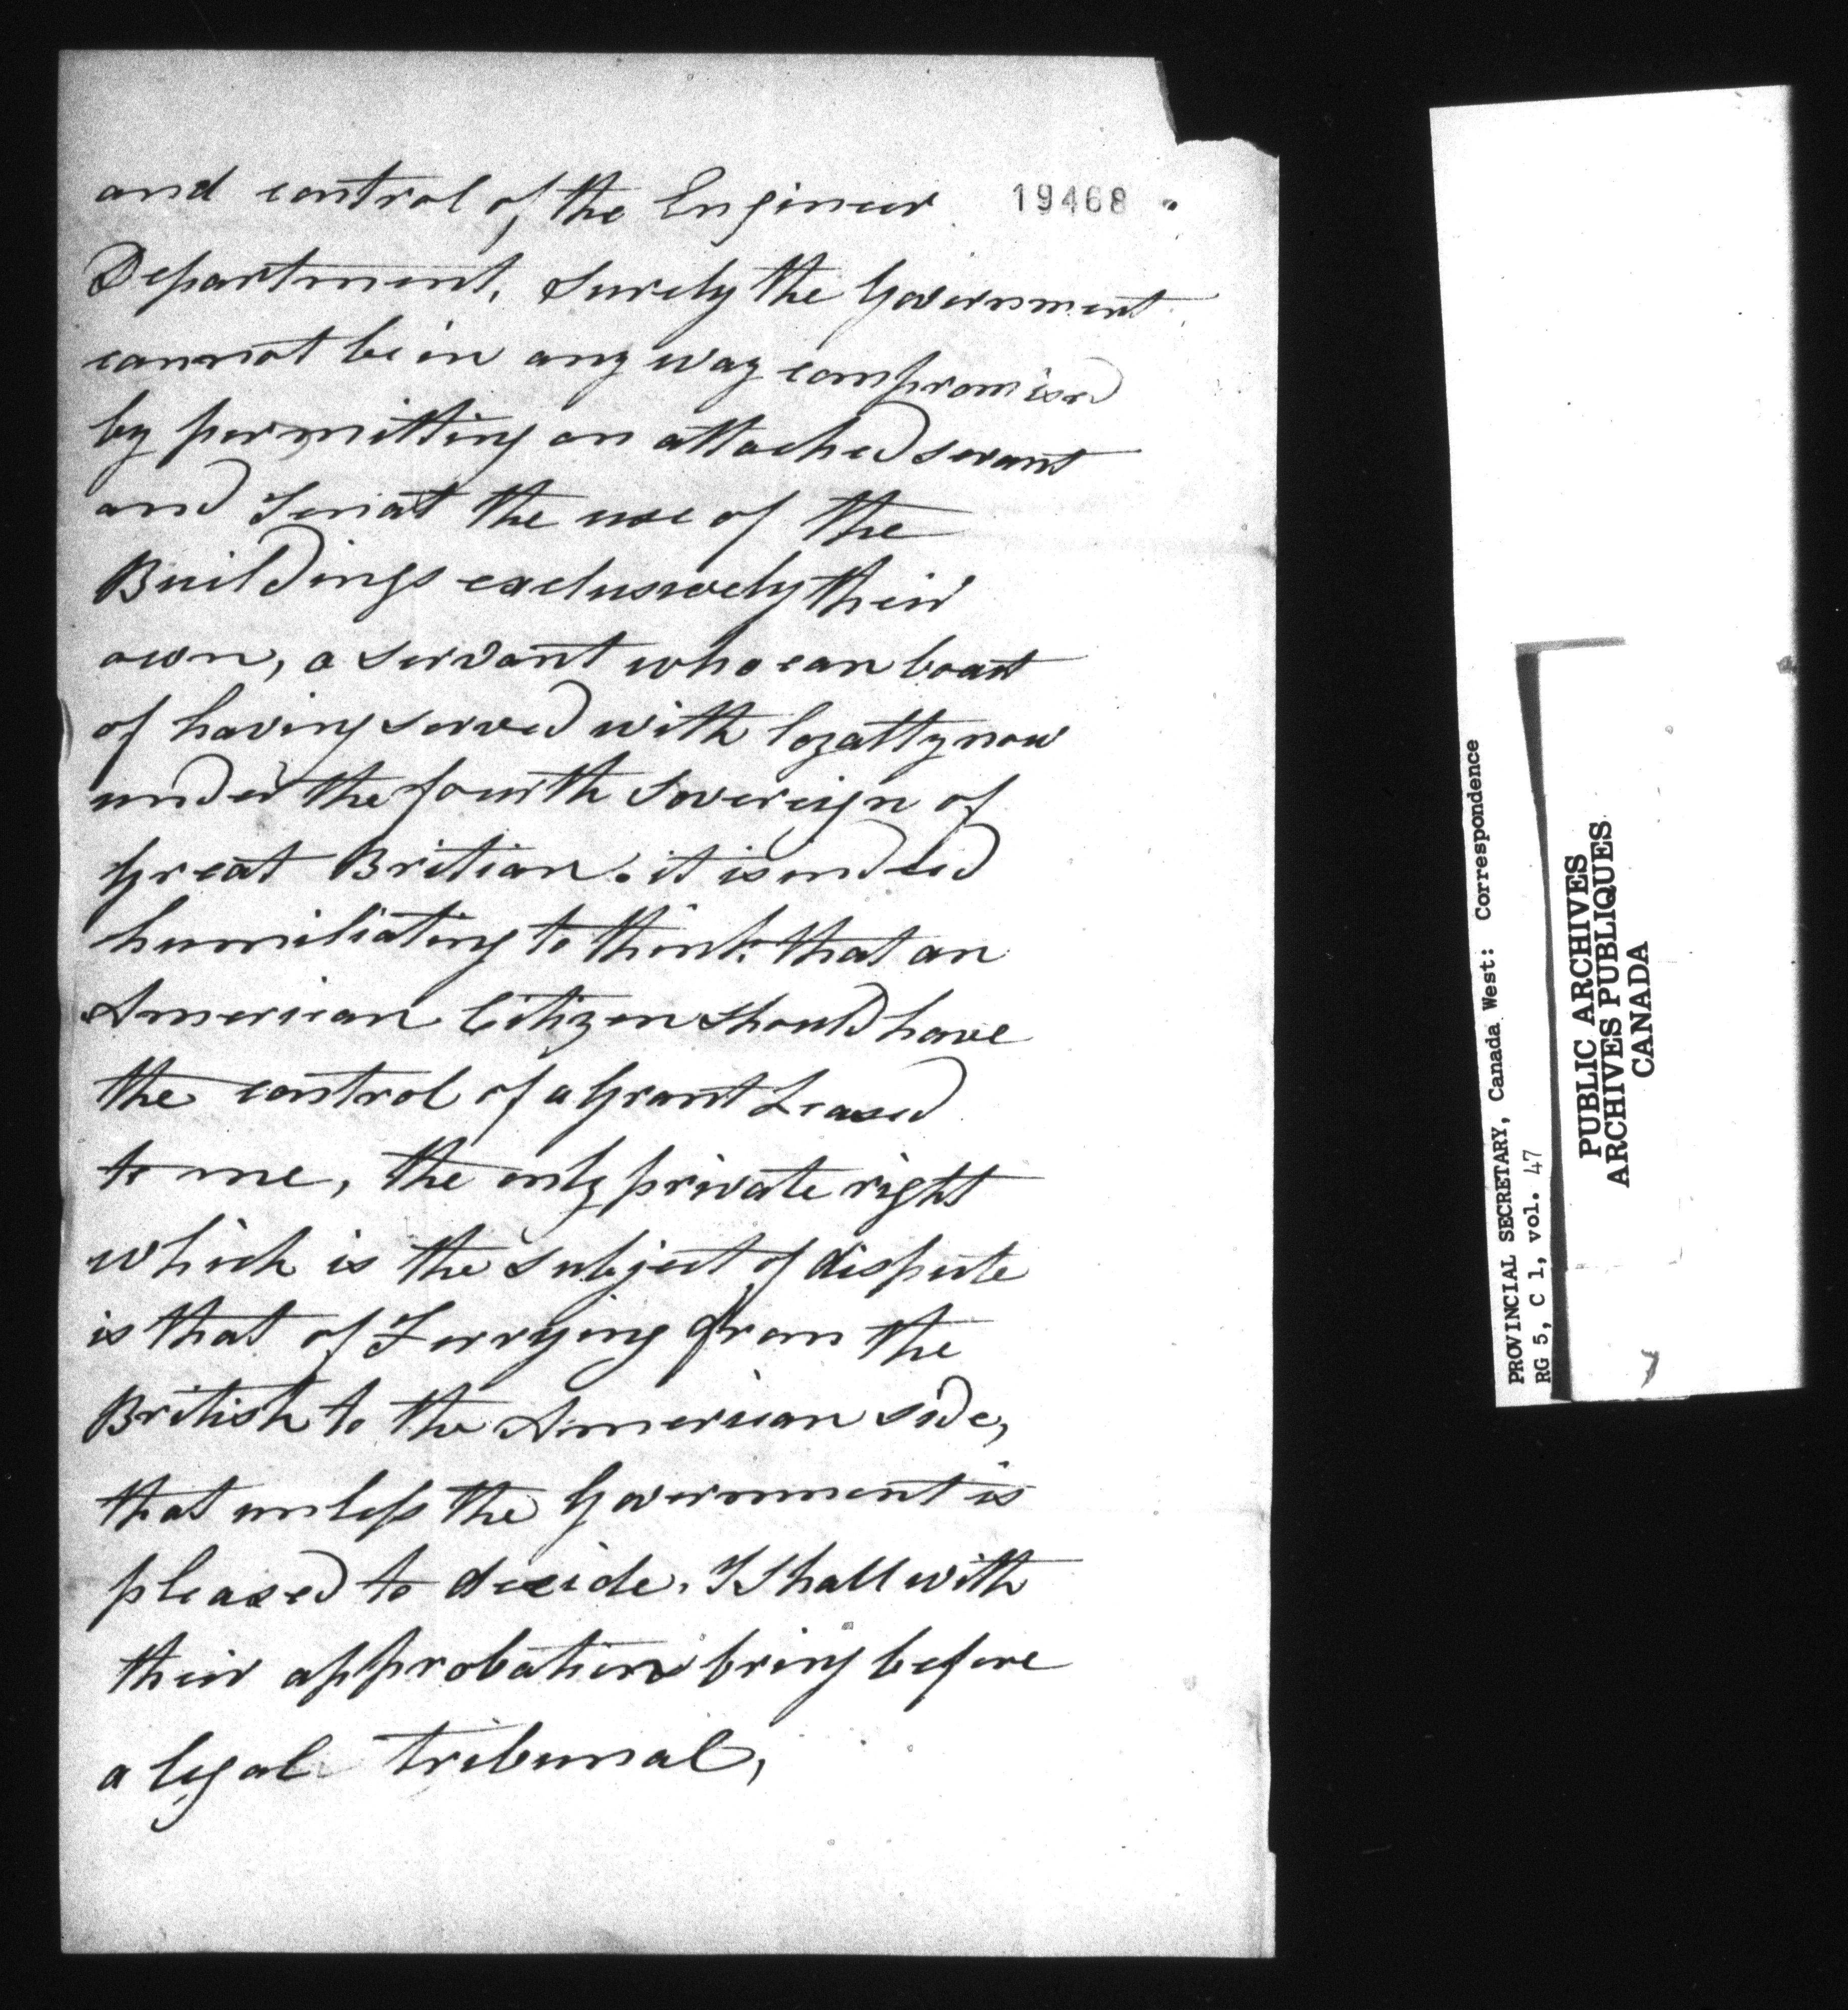 and control of the Engineer 19468
Department, Surely the Government
cannot be in any way compromised
by permitting an attached servant
and Tenant the use of the
Buildings exclusively their
own, a servant who can boast
of having served with loyalty now
under the fourth Sovereign of
Great Britian. it is indeed
humiliating to think that an
American Citizen should have
the control of a Grant Leased
to me, the only private right
which is the subject of dispute
is that of Ferrying from the
British to the American side,
that unless the Government is
pleased to decide. I Shall with
their approbation bring before
a legal tribunal,
PROVINCIAL SECRETARY, Canada West: Correspondence
RG 5, C 1, vol. 47
PUBLIC ARCHIVES
ARCHIVES PUBLIQUES
CANADA